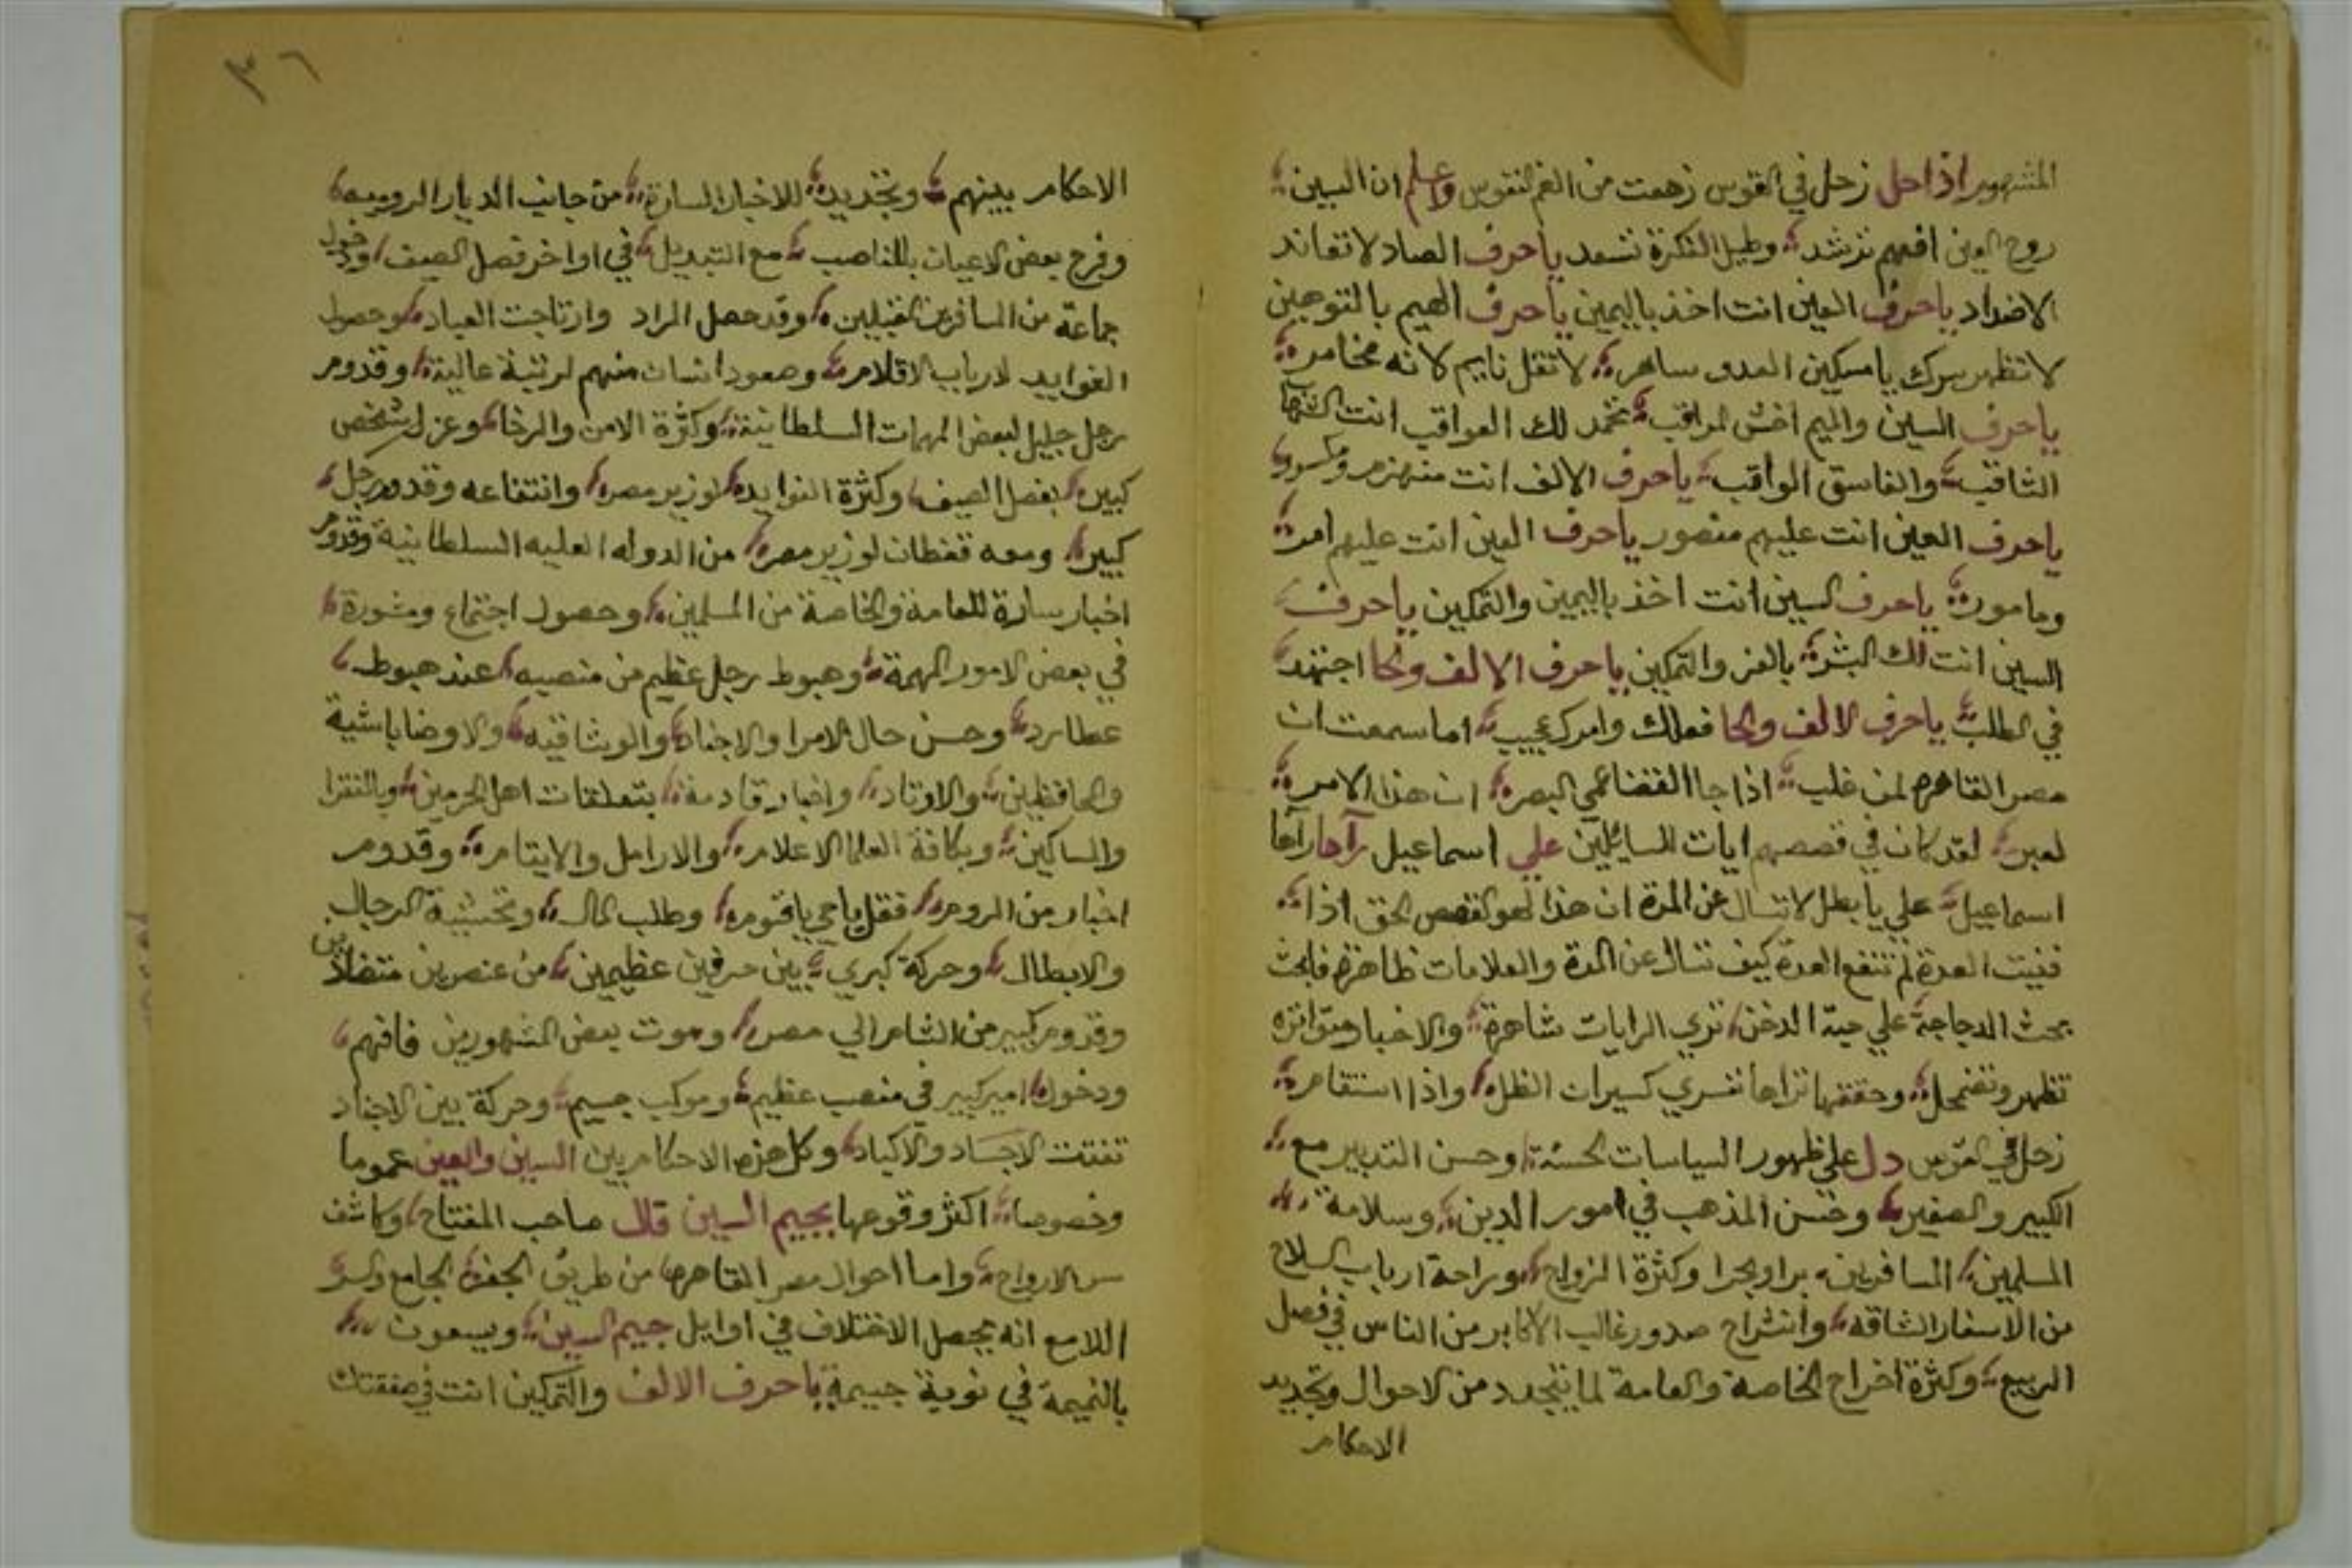 المشهور اذا حل زحل في القوس زهقت من الغم النفوس واعلم ان السين
روح العين افهم ترشد وطيل الفكرة تسعد ياحرف الصاد لا تعاند
الاضداد ياحرف العين انت اخذ باليمين ياحرف الميم بالتوجين
لا تظهر سرك يا مسكين العدو ساهر لا تقل نايم لانه مخامر
ياحرف السين والميم اخش المراقب تحمد لك العواقب انت الشهاب
الثاقب والغاسق الواقب ياحرف الالف انت منهزم ومكسور
ياحرف العين انت عليهم منصور ياحرف العين انت عليهم امر
ومامور ياحرف السين انت اخذ باليمين والتمكين ياحرف
السين انت لك البشر بالعز والتمكين ياحرف الالف والحا اجتهد
في الطلب ياحرف الالف والحا فعلك وامرك عجيب اما سمعت ان
مصر القاهره لمن غلب اذا جا القضا عمي البصر ان هذا الامر
لعبر لقد كان في قصصهم ايات للسايلين علي اسماعيل رآحا رآحا
اسماعيل علي يا بطل لا تسال عن المدة ان هذا لهو القصص الحق اذا
فنيت العدة لم تنفع العدة كيف تسال عن المدة والعلامات ظاهرة فابحث
بحث الدجاجة علي حبة الدخن تري الرايات شاهرة والاخبار متواتره
تظهر وتضمحل وحققها تراها تسري كسيران الظل واذا استقام
زحل في القوس دل علي ظهور السياسات الحسنة وحسن التدبير مع
الكبير والصغير وحسن المذهب في امور الدين وسلامة
المسلمين المسافرين برا وبحرا وكثرة الزواج وراحة ارباب السلاح
من الاسفار الشاقه وانشراح صدور غالب الاكابر من الناس في فصل
الربيع وكثرة اخراج الخاصة والعامة لما يتجدد من الاحوال وتجديد
الاحكام
٣٦
الاحكام بينهم وتجديد للاخبار السارة من جانب الديار الروميه
وفرح بعض الاعيان بالمناصب مع التبديل في اواخر فصل الصيف ودخول
جماعة من المسافرين المقبلين وقد حصل المراد وارتاحت العباد وحصول
الفوايد لارباب الاقلام وصعود انسان منهم لرتبة عالية وقدوم
رجل جليل لبعض المهمات السلطانية وكثرة الامن والرخا وعزل شخص
كبير بفصل الصيف وكثرة الفوايد لوزير مصر وانتفاعه وقدوم رجل
كبير ومعه قفطان لوزير مصر من الدوله العليه السلطانية وقدوم
اخبار سارة للعامة والخاصة من المسلمين وحصول اجتماع ومشورة
في بعض الامور المهمة وهبوط رجل عظيم من منصبه عند هبوط
عطارد وحسن حال الامرا والاجناد والوشاقيه والاوضاباشية
والحافظين والاوتاد واخبار قادمة بتعلقات اهل الحرمين وبالفقرا
والمساكين وبكافة العلما الاعلام والارامل والايتام وقدوم
اخبار من الروم فقل ياحي ياقيوم وطلب المال وتحشية الرجال
والابطال وحركة كبري بين حرفين عظيمين من عنصرين متضادين
وقدوم كبير من الشام الي مصر وموت بعض المشهورين فافهم
ودخول امير كبير في منصب عظيم وموكب جسيم وحركة بين الاجناد
تفتت الاجساد والاكباد وكل هذه الاحكام بين السين والعين عموما
وخصوصا اكثر وقوعها بجيم السين قال صاحب المفتاح وكاشف
سر الارواح واما احوال مصر القاهره من طريق الجفر الجامع والسر
اللامع انه يحصل الاختلاف في اوايل جيم السين ويسعون
بالنميمة في نوبة جسيمة ياحرف الالف والتمكين انت في صفقتك